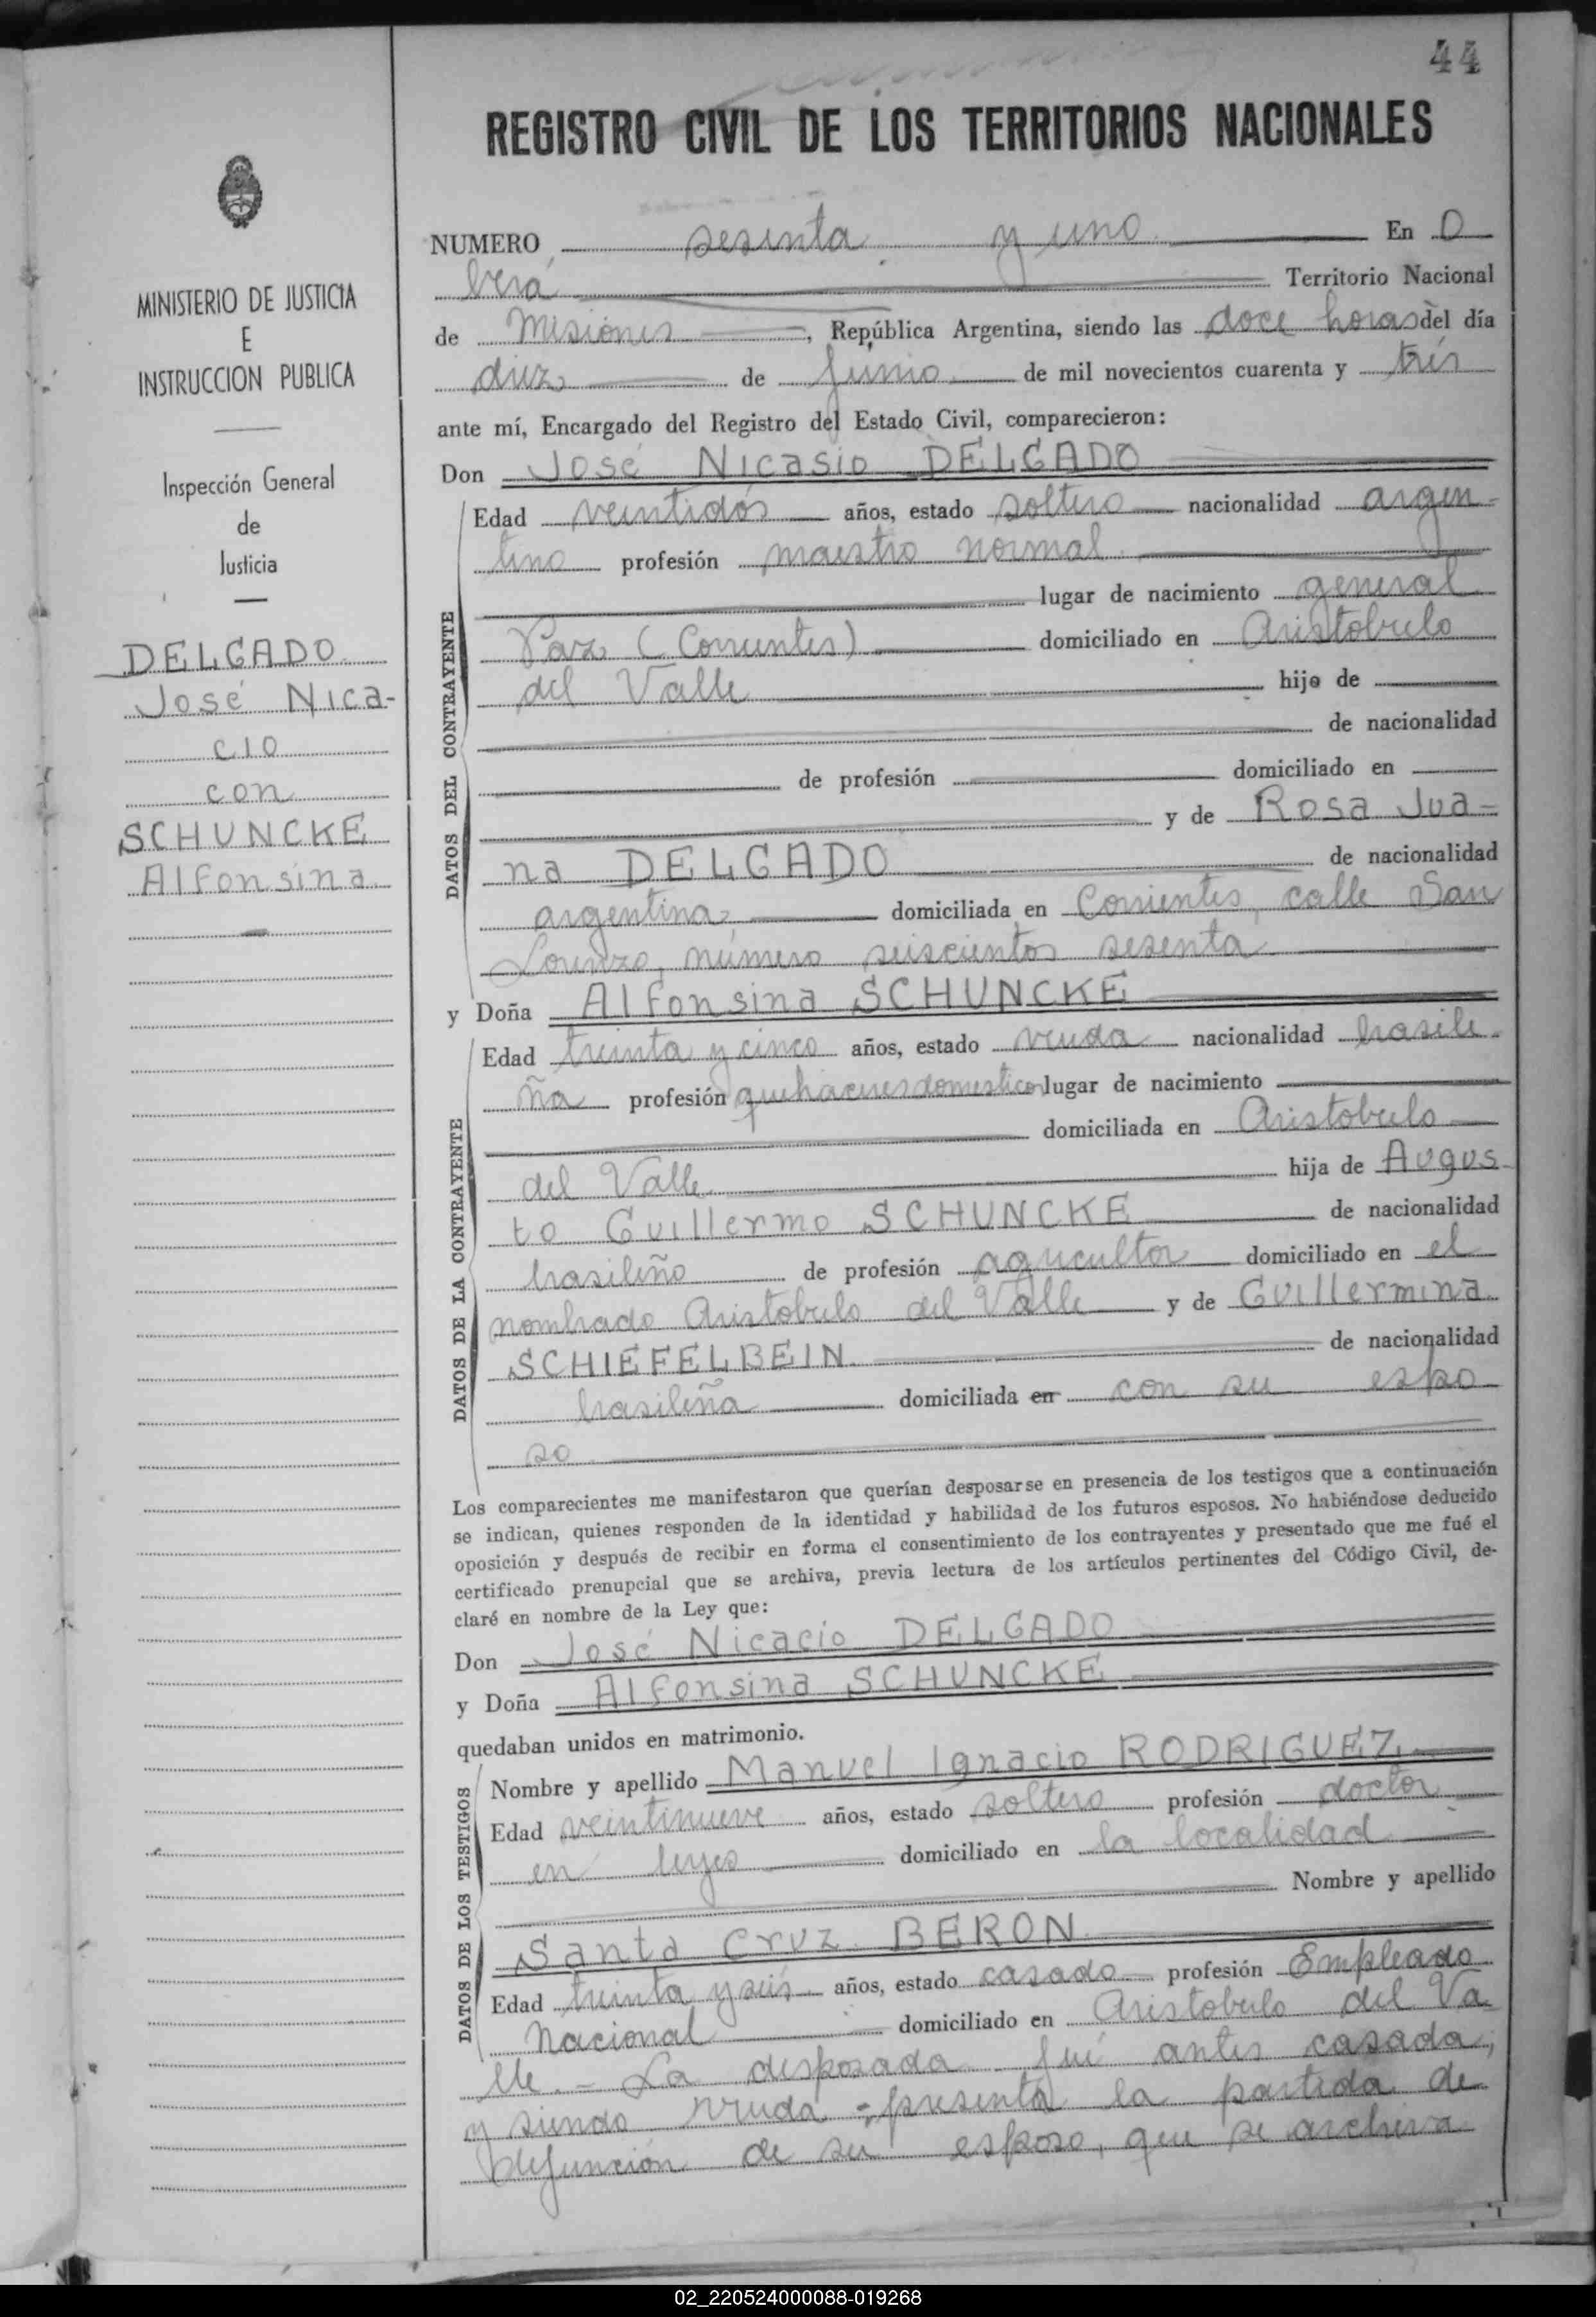 44
REGISTRO CIVIL DE LOS TERRITORIOS NACIONALES
MINISTERIO DE JUSTICIA
E
INSTRUCCION PUBLICA
Inspección General
de
Justicia
DELGADO
José Nica-
cio
con
SCHUNCKE
Alfonsina
NUMERO sesenta y uno En O
berá Territorio Nacional
de Misiones, República Argentina, siendo las doce horas del día
diez de Junio de mil novecientos cuarenta y tres
ante mí, Encargado del Registro del Estado Civil, comparecieron:
Don José Nicasio DELGADO
DATOS DEL CONTRAYENTE
Edad veintidós años, estado soltero nacionalidad argen-
tino profesión maestro normal
lugar de nacimiento general
Paz (Corrientes) domiciliado en Aristobulo
del Valle hijo de
de nacionalidad
de profesión domiciliado en
y de Rosa Jua-
na DELGADO de nacionalidad
argentina domiciliada en Corrientes, calle San
Lorenzo, número seiscientos sesenta
y Doña Alfonsina SCHUNCKE
DATOS DE LA CONTRAYENTE
Edad treinta y cinco años, estado viuda nacionalidad brasile-
ña profesión quehaceres domesticos lugar de nacimiento
domiciliada en Aristobulo
del Valle hija de Augus-
to Guillermo SCHUNCKE de nacionalidad
brasileño de profesión agricultor domiciliado en el
nombrado Aristobulo del Valle y de Guillermina
SCHIEFELBEIN de nacionalidad
brasileña domiciliada en con su espo
so
Los comparecientes me manifestaron que querían desposarse en presencia de los testigos que a continuación
se indican, quienes responden de la identidad y habilidad de los futuros esposos. No habiéndose deducido
oposición y después de recibir en forma el consentimiento de los contrayentes y presentado que me fué el
certificado prenupcial que se archiva, previa lectura de los artículos pertinentes del Código Civil, de-
claré en nombre de la Ley que:
Don José Nicacio DELGADO
y Doña Alfonsina SCHUNCKE
quedaban unidos en matrimonio.
DATOS DE LOS TESTIGOS
Nombre y apellido Manuel Ignacio RODRIGUEZ
Edad veintinueve años, estado soltero profesión doctor
en leyes domiciliado en la localidad
Nombre y apellido
Santa Cruz BERON
Edad treinta y seis años, estado casado profesión Empleado
Nacional domiciliado en Aristobulo del Va
lle.- La desposada fué antes casada,
y siendo viuda presenta la partida de
defunción de su esposo, que se archiva
02_220524000088-019268